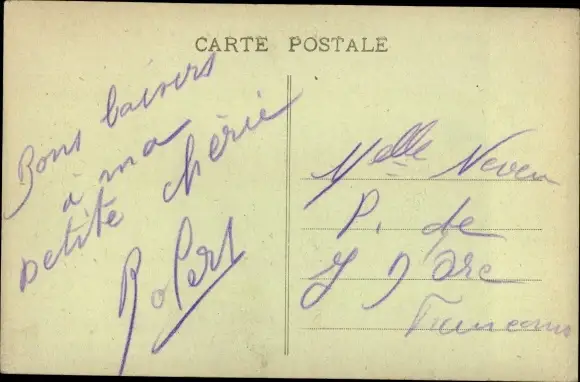 CARTE POSTALE
Bons baisers
à ma
petite chérie
Robert
Melle Neveu
P. de
J D'Arc